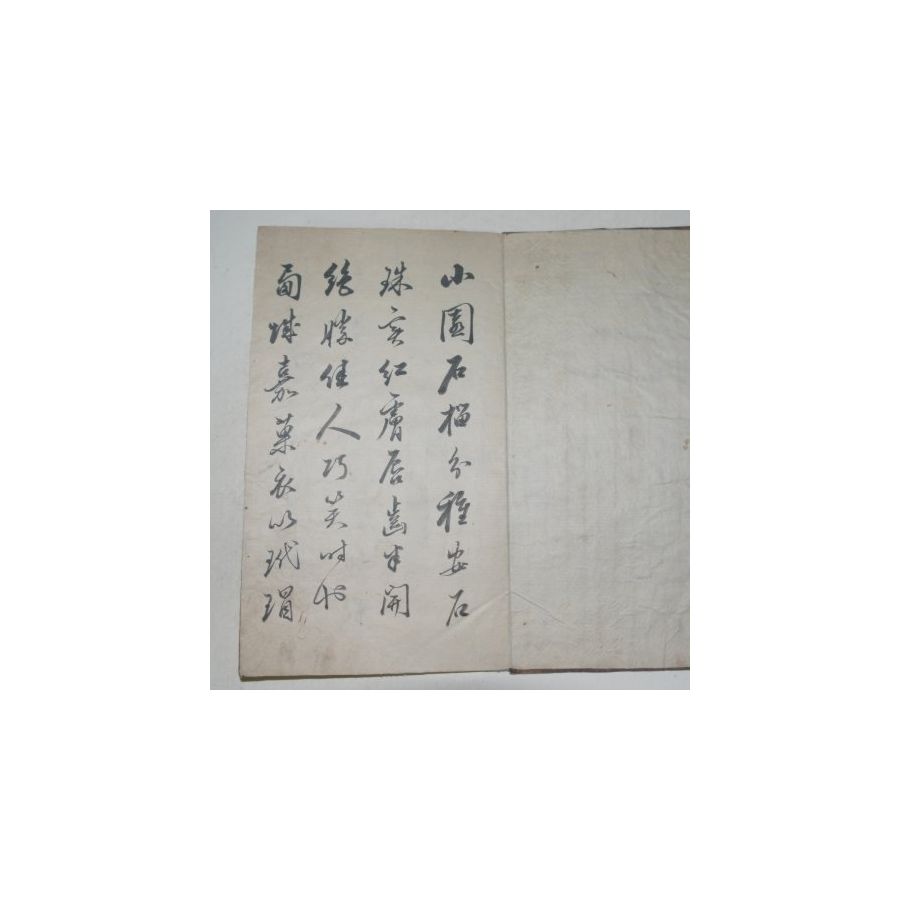 小園石榴分種安石
珠实紅膚唇齒半開
絶勝佳人巧笑時
嘉菓衣以玳瑁